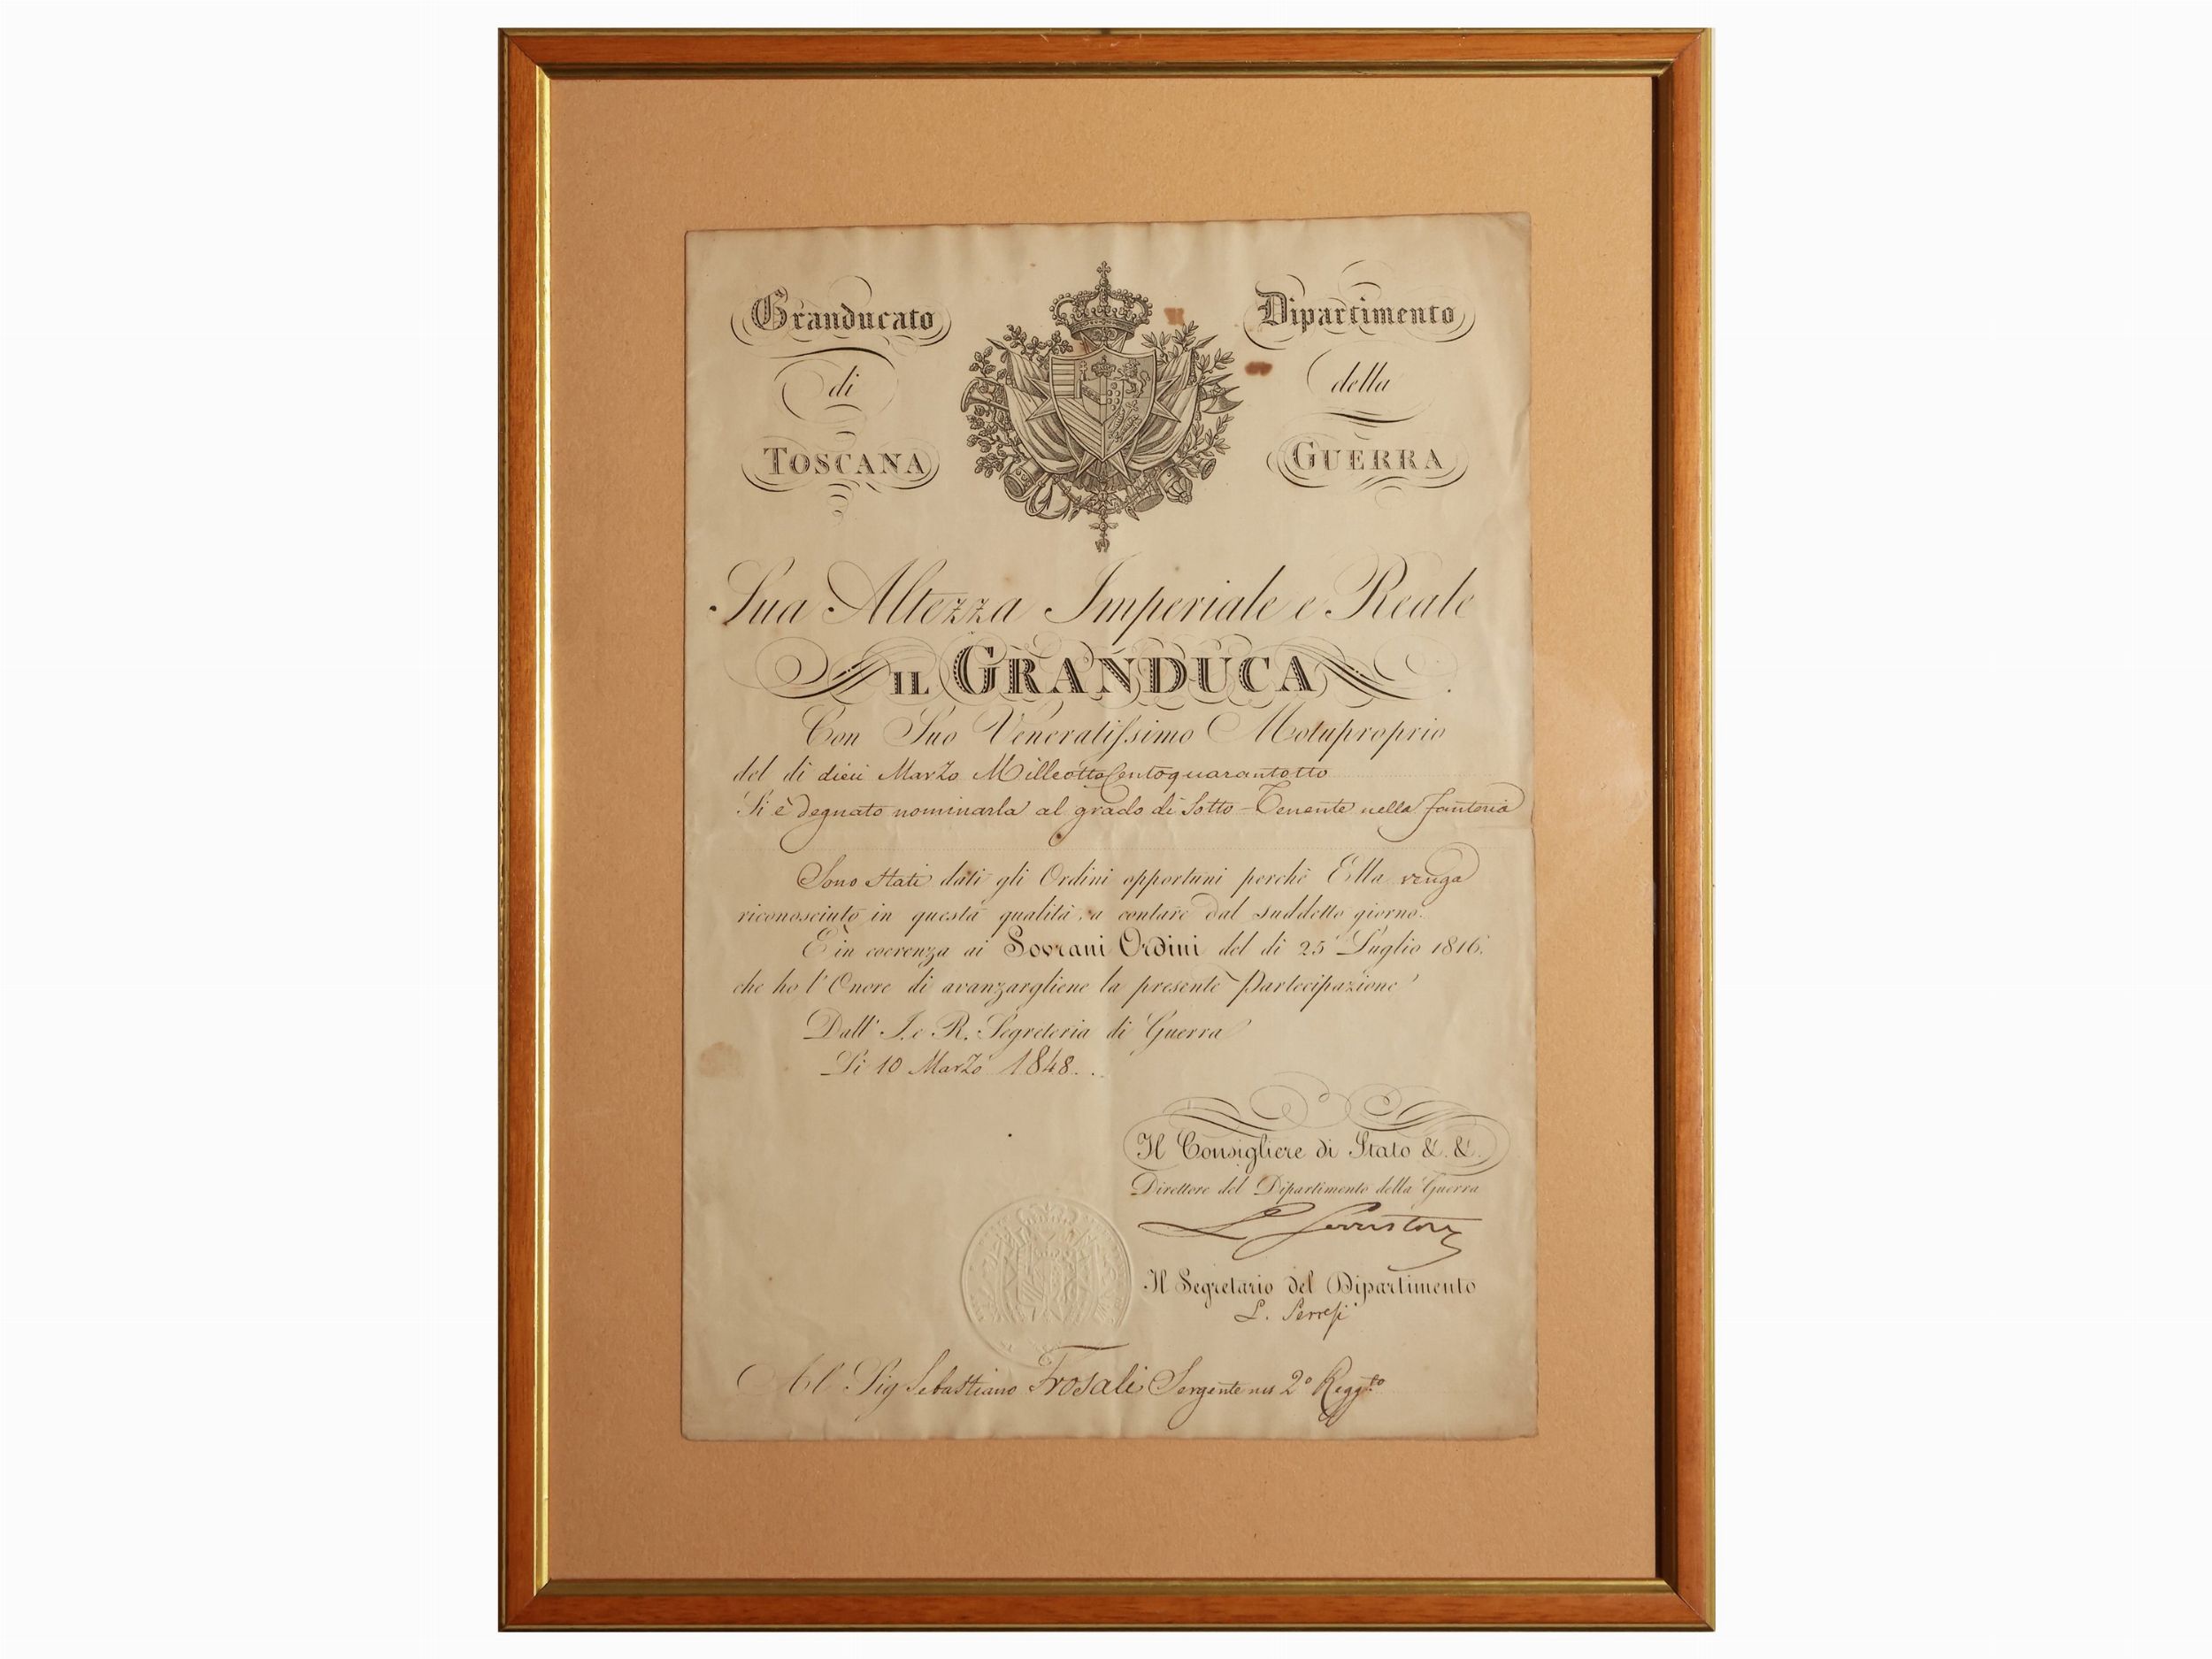 Granducato
di
TOSCANA
Dipartimento
della
GUERRA
Sua Altezza Imperiale e Reale
IL GRANDUCA
Con Suo Veneratissimo Motuproprio
del dì dieci Marzo Milleottocentoquarantotto
Si è degnato nominarla al grado di Sotto-Tenente nella fanteria
Sono stati dati gli Ordini opportuni perchè Ella venga
riconosciuto in questa qualità a contare dal suddetto giorno.
È in coerenza ai Sovrani Ordini del dì 25 Luglio 1816.
che ho l'Onore di avanzargliene la presente Partecipazione
Dall' I. e R. Segreteria di Guerra
Lì 10 Marzo 1848.
Il Consigliere di Stato &. &.
Direttore del Dipartimento della Guerra
L. Serristori
Il Segretario del Dipartimento
L.
Al Sig Sebastiano Frosali Sergente nel 2º Regg.to